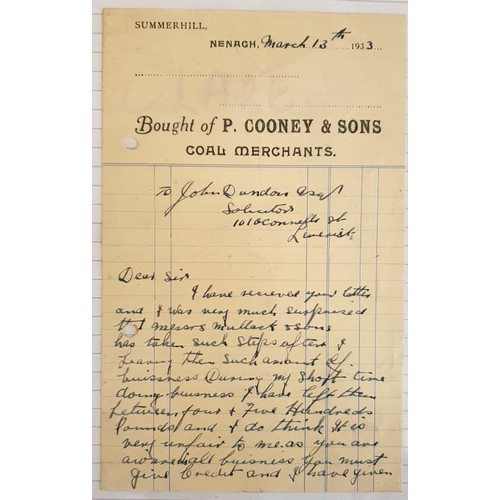 SUMMERHILL,
NENAGH, March 13th 1933
Bought of P. COONEY & SONS
COAL MERCHANTS.
To John Dundon Esqr
Solicitor
101 OConnell St
Limerick
Dear Sir
I have recieved your letter
and I was very much surprised
that Messrs Mullock & Sons
has taken such steps after I
leaving them such amount of
buisness During my short time
doing buisness I have left them
between four & Five Hundreds
Pounds and I do think It is
very unfair to me. as you are
aware all buisness you must
give Credit and I have given